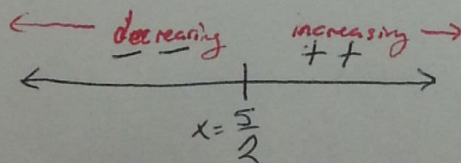 decreasing increasing
- - + +
x = 5/2